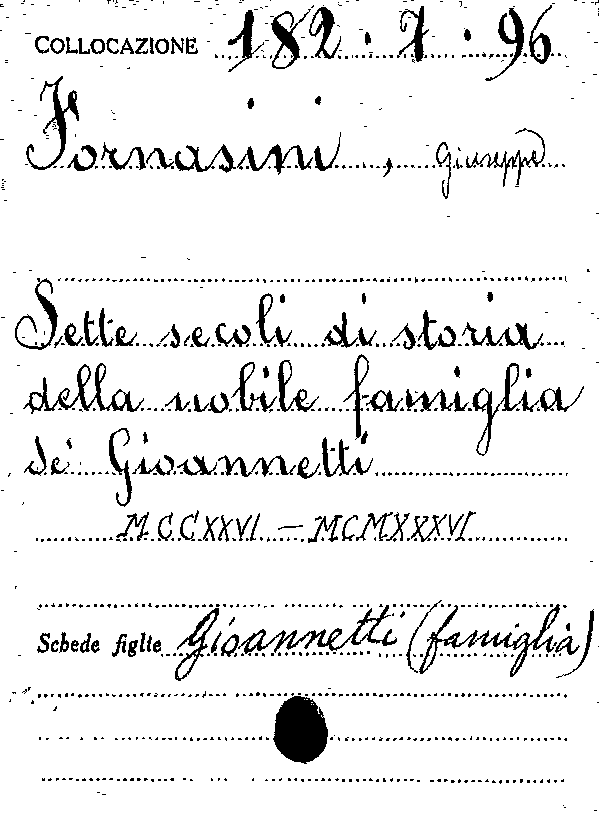 COLLOCAZIONE 182 . 7 . 96
Fornasini, Giuseppe
Sette secoli di storia
della nobile famiglia
de' Gioannetti
MCCXXVI – MCMXXXVI
Schede figlie Gioannetti (famiglia)